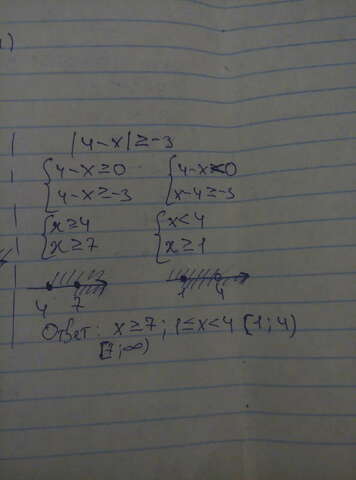 1)
|4-x|≥-3
{4-x≥0 {4-x<0
{4-x≥-3 {x-4≥-3
{x≥4 {x<4
{x≥7 {x≥1
4 7 1 4
Ответ: x≥7; 1≤x<4 [1;4)
[7;∞)